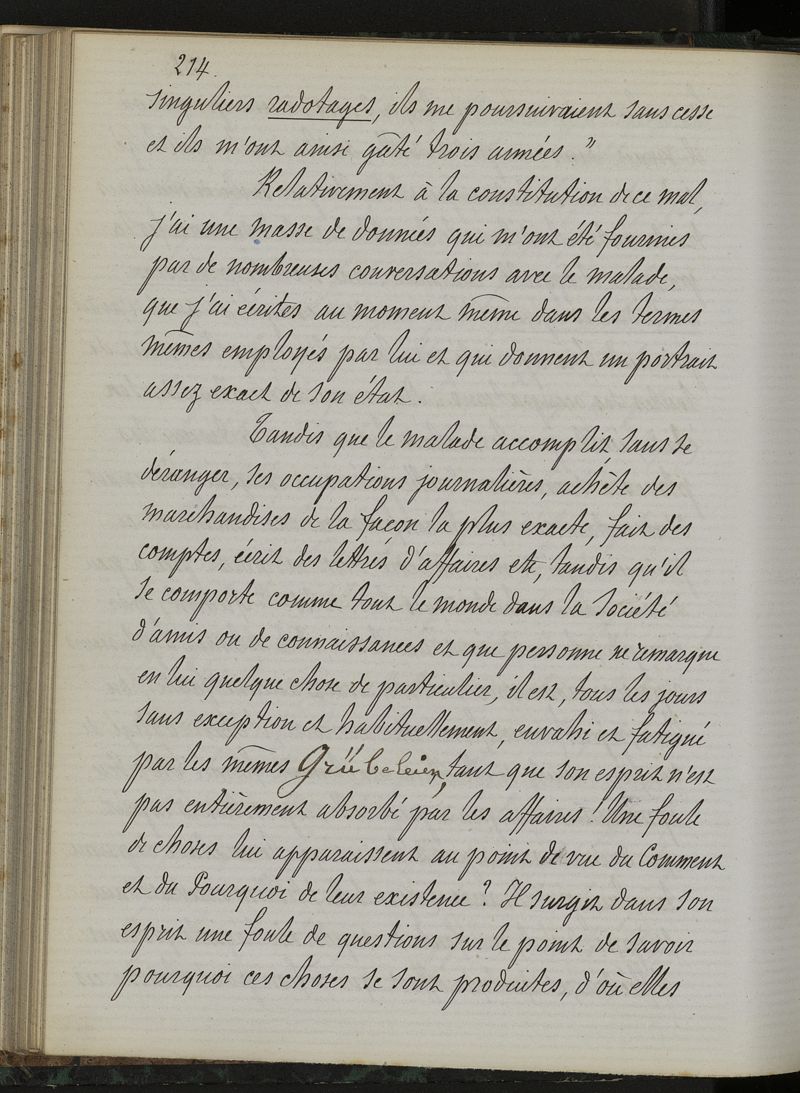 214.
singuliers radotages, ils me poursuivaient sans cesse
et ils m'ont ainsi gâté trois années."
Relativement à la constitution de ce mal,
j'ai une masse de données qui m'ont été fournies
par de nombreuses conversations avec le malade,
que j'ai écrites au moment même dans les termes
mêmes employés par lui et qui donnent un portrait
assez exact de son état.
Tandis que le malade accomplit, sans se
déranger, ses occupations journalières, achète des
marchandises de la façon la plus exacte, fait des
comptes, écrit des lettres d'affaires etc, tandis qu'il
se comporte comme tout le monde dans la société
d'amis ou de connaissances et que personne ne remarque
en lui quelque chose de particulier, il est, tous les jours
sans exception et habituellement, envahi et fatigué
par les mêmes Grübeleien, tant que son esprit n'est
pas entièrement absorbé par les affaires! Une foule
de choses lui apparaissent au point de vue du Comment
et du Pourquoi de leur existence? Il surgit dans son
esprit une foule de questions sur le point de savoir
pourquoi ces choses se sont produites, d'où elles